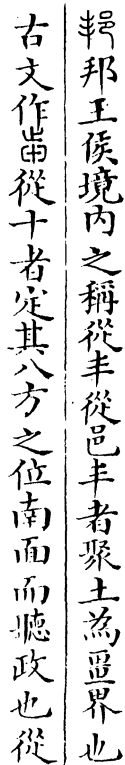 邦王侯境內之稱從丰從邑丰者聚土為畺界也
古文作𤰫從十者定其八方之位南面而聽政也從